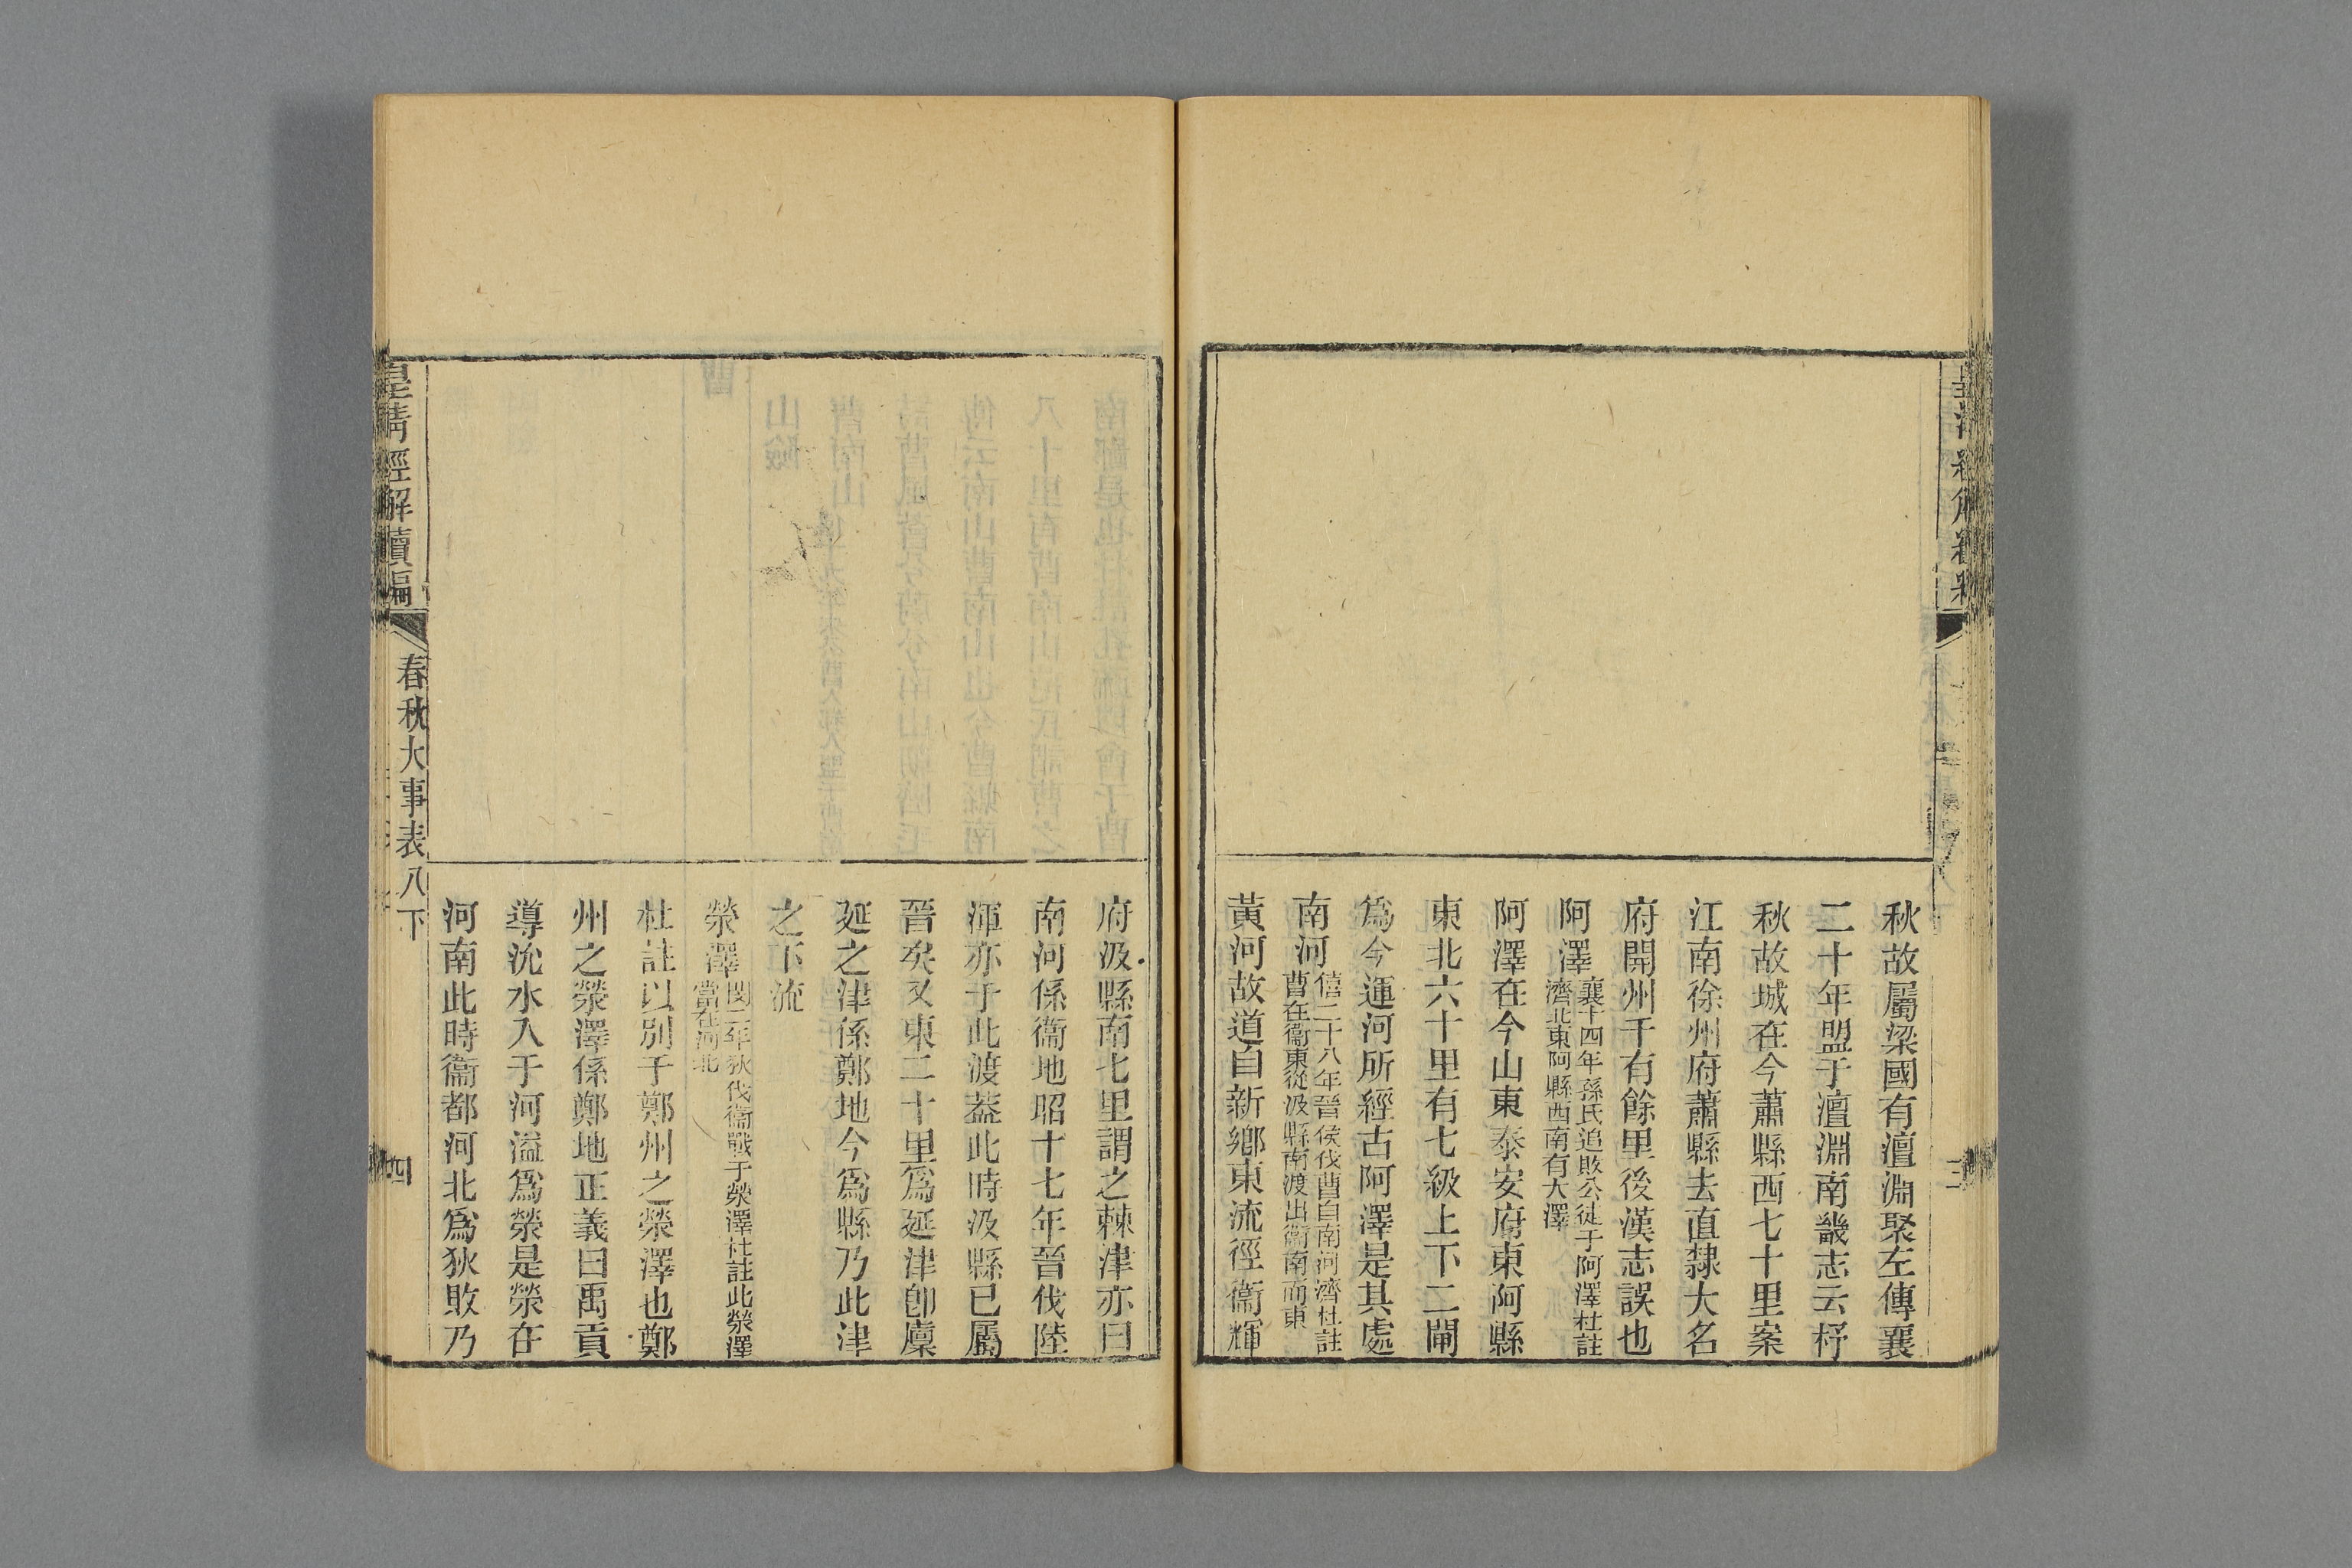 秋故屬梁國有澶淵聚左傳襄
二十年盟于澶淵南畿志云杼
秋故城在今蕭縣西七十里案
江南徐州府蕭縣去直隸大名
府開州千有餘里後漢志誤也
阿澤襄十四年孫氏追敗公徒于阿澤杜註
濟北東阿縣西南有大澤
阿澤在今山東泰安府東阿縣
東北六十里有七級上下二閘
爲今運河所經古阿澤是其處
南河僖二十八年晉侯伐曹自南河濟杜註
曹在衞東從汲縣南渡出衞南而東
黃河故道自新鄉東流徑衞輝
三
府汲縣南七里謂之棘津亦曰
南河係衞地昭十七年晉伐陸
渾亦于此渡葢此時汲縣已屬
晉矣又東二十里爲延津卽廩
延之津係鄭地今爲縣乃此津
之下流
滎澤閔二年狄伐衞戰于滎澤杜註此滎澤
當在河北
杜註以別于鄭州之滎澤也鄭
州之滎澤係鄭地正義曰禹貢
導沇水入于河溢爲滎是滎在
河南此時衞都河北爲狄敗乃
皇淸經解續編
春秋大事表八下
四